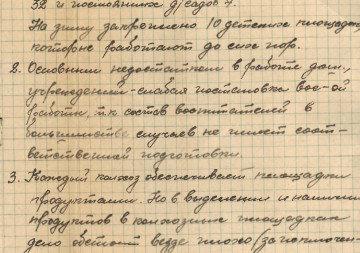 32 и постоянных д/садов 7.
На зиму закреплено 10 детских площадок,
которые работают до сих пор.
2. Основным недостатком в работе дош.
учреждений - слабая постановка вос-ой
работы, т.к. состав воспитателей в
большинстве случаев не имеет соот-
ветственной подготовки.
3. Каждый колхоз обеспечивает площадки
продуктами. Но в выделении и наличии
продуктов в колхозных площадках
дело обстоит везде плохо (за исключен-